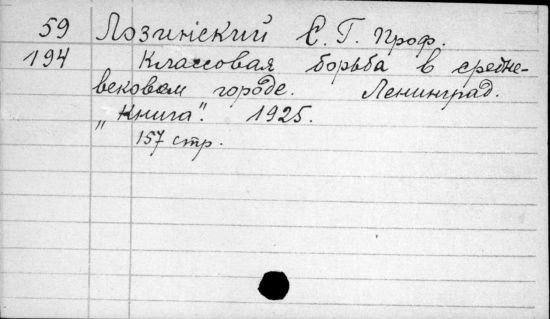 59 Лозинский С. Г. проф.
194 Классовая борьба в средне-
вековом городе. Ленинград.
„Книга". 1925.
157 стр.